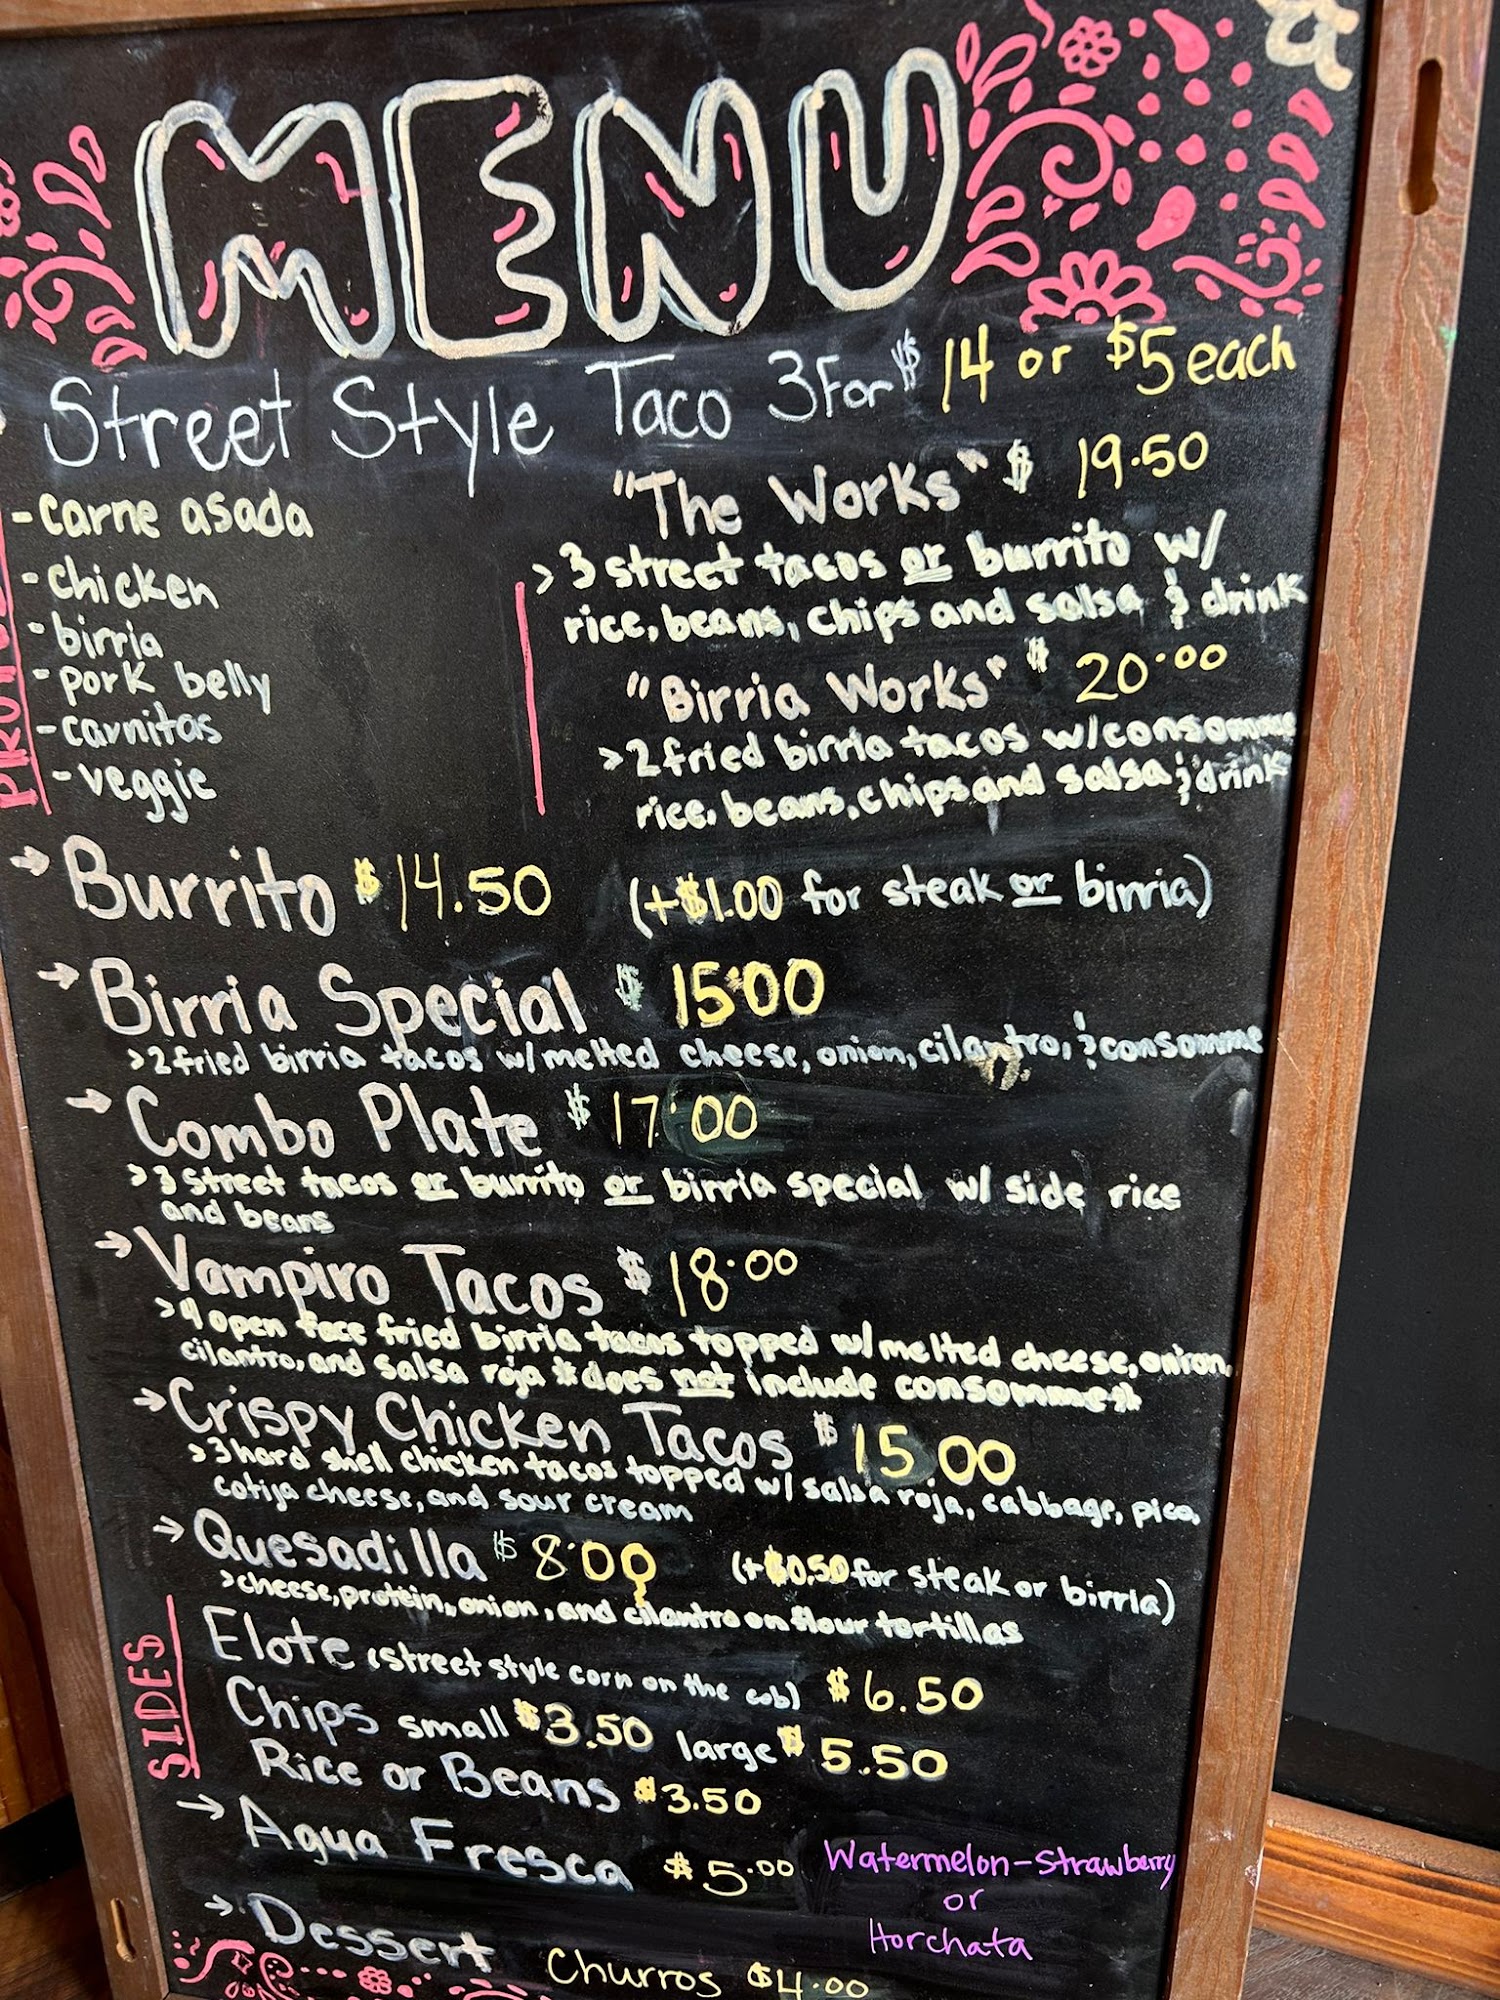 MENU
Street Style Taco 3 For $14 or $5 each
-carne asada
-chicken
-birria
-pork belly
-carnitas
-veggie
"The Works" $ 19.50
>3 street tacos or burrito w/
rice, beans, chips and salsa & drink
"Birria Works" $ 20.00
>2 fried birria tacos w/consomme
rice, beans, chips and salsa & drink
→ Burrito $14.50 (+$1.00 for steak or birria)
→ Birria Special $ 15.00
>2 fried birria tacos w/melted cheese, onion, cilantro, & consomme
→ Combo Plate $ 17.00
>3 street tacos or burrito or birria special w/ side rice
and beans
→ Vampiro Tacos $ 18.00
>4 open face fried birria tacos topped w/melted cheese, onion,
cilantro, and salsa roja *does not include consomme*
→ Crispy Chicken Tacos $ 15.00
>3 hard shell chicken tacos topped w/ salsa roja, cabbage, pico,
cotija cheese, and sour cream
→ Quesadilla $ 8.00 (+$0.50 for steak or birria)
>cheese, protein, onion, and cilantro on flour tortillas
SIDES
Elote (street style corn on the cob) $6.50
Chips small $3.50 large $5.50
Rice or Beans $3.50
→ Agua Fresca $5.00 Watermelon-Strawberry
or
Horchata
→ Dessert Churros $4.00